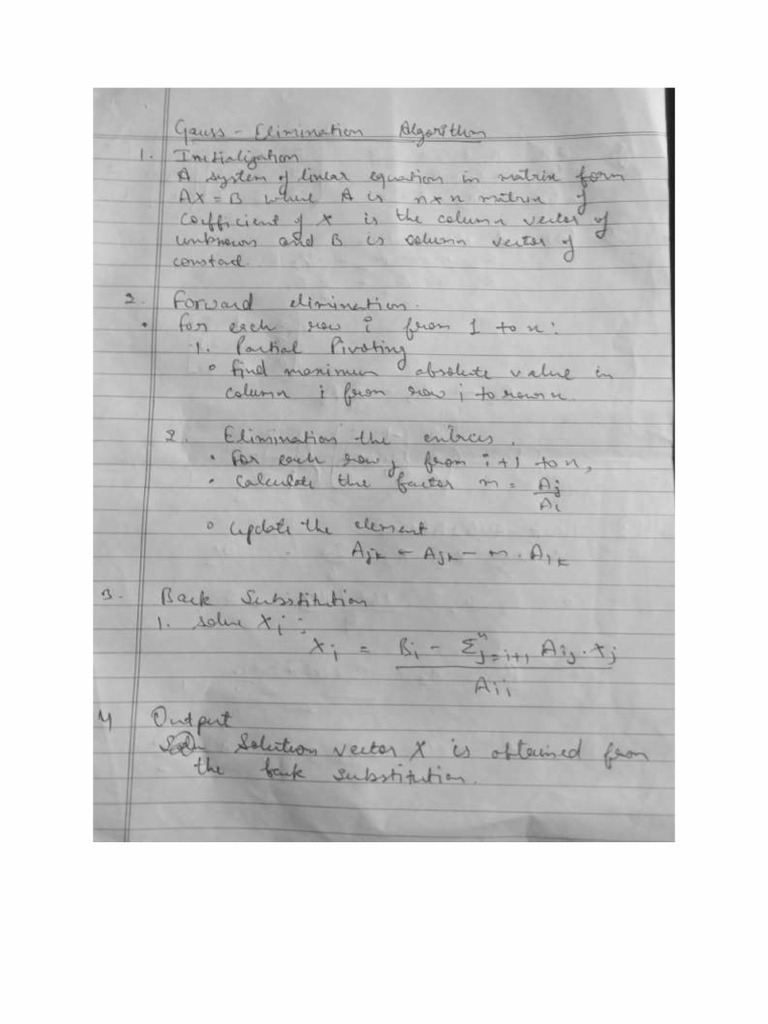 Gauss - Elimination Algorithm
1. Initialization
A system of linear equation in matrix form
AX = B where A is n×n matrix of
coefficient of X is the column vector of
unknown and B is column vector of
constant.
2. Forward elimination.
• for each row i from 1 to n:
1. Partial Pivoting
◦ find maximum absolute value in
column i from row i to row n.
2. Elimination the entries.
• for each row j from i+1 to n,
• Calculate the factor m = Aj / Ai
◦ update the element
Ajk = Ajk - m. Aik
3. Back Substitution
1. solve Xi :
Xi = Bi - Σⁿj=i+1 Aij . Xj / Aii
4 Output
Solution vector X is obtained from
the back substitution.